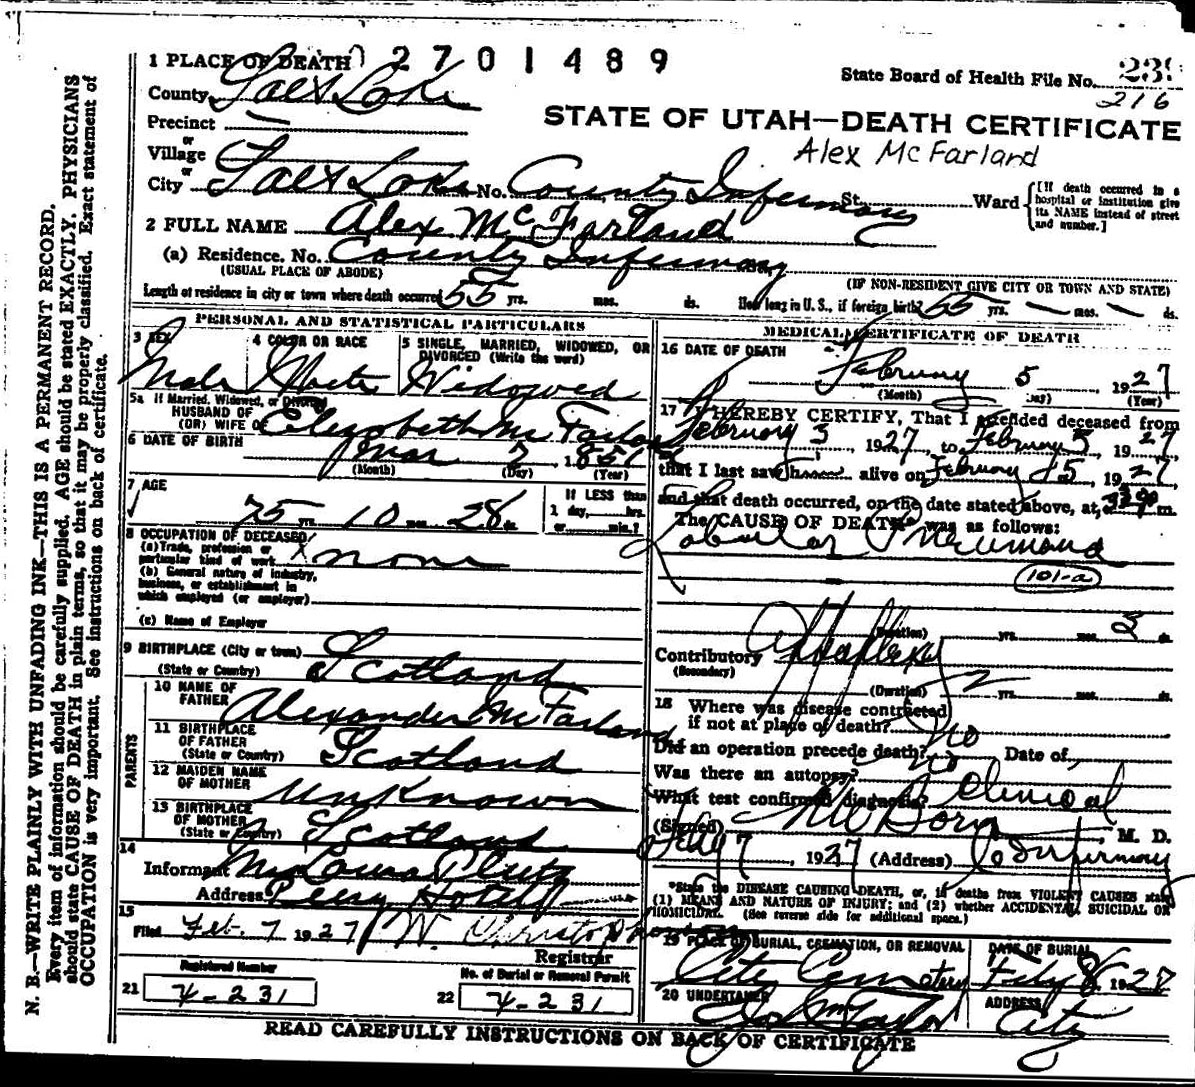 1 PLACE OF DEATH 2701489
State Board of Health File No. 239
216
County Salt Lake
STATE OF UTAH—DEATH CERTIFICATE
Precinct —
or
Village
Alex McFarland
or
City Salt Lake No. County Infirmary St. Ward
[If death occurred in a hospital or institution give its NAME instead of street and number.]
2 FULL NAME Alex McFarland
(a) Residence. No. County Infirmary
(USUAL PLACE OF ABODE)
(IF NON-RESIDENT GIVE CITY OR TOWN AND STATE)
Length of residence in city or town where death occurred 55 yrs. mos. ds. How long in U.S., if foreign birth? 55 yrs. — mos. — ds.
PERSONAL AND STATISTICAL PARTICULARS
3 SEX
Male
4 COLOR OR RACE
White
5 SINGLE, MARRIED, WIDOWED, OR DIVORCED (Write the word)
Widowed
5a If Married, Widowed, or Divorced
HUSBAND OF
(OR) WIFE OF Elizabeth McFarland
6 DATE OF BIRTH
Mar 7 1851
(Month) (Day) (Year)
7 AGE
75 yrs. 10 mos. 28 ds.
If LESS than
1 day, hrs.
or min.?
8 OCCUPATION OF DECEASED
(a) Trade, profession or
particular kind of work none
(b) General nature of industry,
business, or establishment in
which employed (or employer)
(c) Name of Employer
9 BIRTHPLACE (City or town)
(State or Country) Scotland
PARENTS
10 NAME OF
FATHER Alexander McFarland
11 BIRTHPLACE
OF FATHER
(State or Country) Scotland
12 MAIDEN NAME
OF MOTHER Unknown
13 BIRTHPLACE
OF MOTHER
(State or Country) Scotland
14
Informant Mrs Laura
Address Perry Hotel
15
Filed Feb. 7 1927 W. Christopherson
Registrar
Registered Number
21 4-231
No. of Burial or Removal Permit
22 4-231
MEDICAL CERTIFICATE OF DEATH
16 DATE OF DEATH
February 5 1927
(Month) Day) (Year)
17 I HEREBY CERTIFY, That I attended deceased from
February 3, 1927 to February 5, 1927
that I last saw h alive on February 5, 1927
and that death occurred, on the date stated above, at m.
The CAUSE OF DEATH* was as follows:
Lobular Pneumonia
101-a
(Duration) yrs. mos. 3 ds.
Contributory Apoplexy
(Secondary)
(Duration) 2 yrs. mos. ds.
18 Where was disease contracted
if not at place of death?
Did an operation precede death? No Date of,
Was there an autopsy? no
What test confirmed diagnosis? Clinical
(Signed) , M. D.
Feby 7, 1927 (Address) Co Infirmary
*State the DISEASE CAUSING DEATH, or, if deaths from VIOLENT CAUSES state
(1) MEANS AND NATURE OF INJURY; and (2) whether ACCIDENTAL, SUICIDAL OR
HOMICIDAL. (See reverse side for additional space.)
19 PLACE OF BURIAL, CREMATION, OR REMOVAL
City Cemetery
DATE OF BURIAL
Feby 8, 1927
20 UNDERTAKER
Jos Wm Taylor
ADDRESS
City
READ CAREFULLY INSTRUCTIONS ON BACK OF CERTIFICATE
N. B.—WRITE PLAINLY WITH UNFADING INK—THIS IS A PERMANENT RECORD.
Every item of information should be carefully supplied. AGE should be stated EXACTLY. PHYSICIANS
should state CAUSE OF DEATH in plain terms, so that it may be properly classified. Exact statement of
OCCUPATION is very important. See instructions on back of certificate.